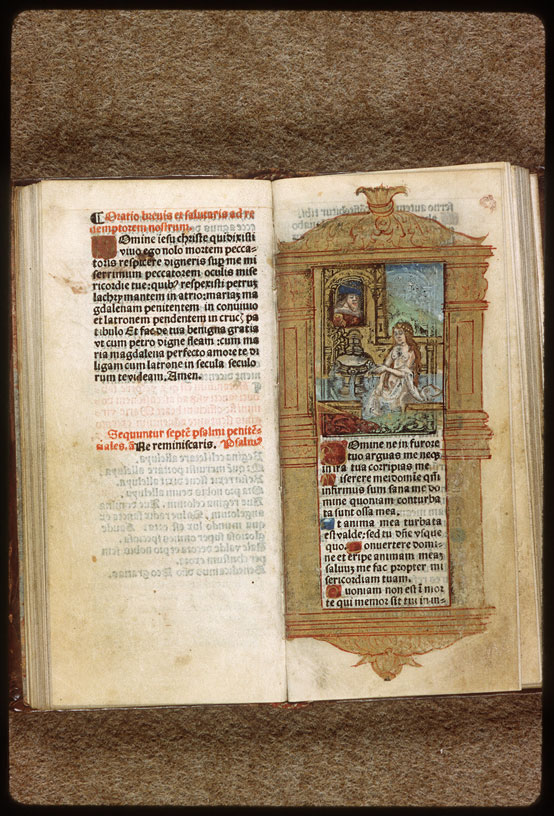 Oratio breuis et salutaris ad re
demptorem nostrum.
Domine iesu christe qui dixisti
viuo ego nolo mortem pecca-
toris respicere digneris sup me mi
serrimum peccatorem oculis mise
ricordie tue: quibꝰ respexisti petrum
lachrymantem in atrio: mariam ma
gdalenam penitentem in conuiuio
et latronem pendentem in cruci pa
tibulo Et fac de tua benigna gratia
vt cum petro digne fleam: cum ma
ria magdalena perfecto amore te di
ligam cum latrone in secula seculo
rum te videam. Amen.
Sequuntur septē psalmi penitē-
tiales. añ Ne reminiscaris. Psalmꝰ
Domine ne in furore
tuo arguas me neqꝫ
in ira tua corripias me
Miserere mei domie qm̄
infirmus sum sana me do
mine quoniam conturba
ta sunt ossa mea.
Et anima mea turbata
est valde: sed tu dn̄e vsque
quo. Conuertere domi-
ne et eripe animam meam
saluum me fac propter mi
sericordiam tuam.
Quoniam non est ī mor
te qui memor sit tui in in-